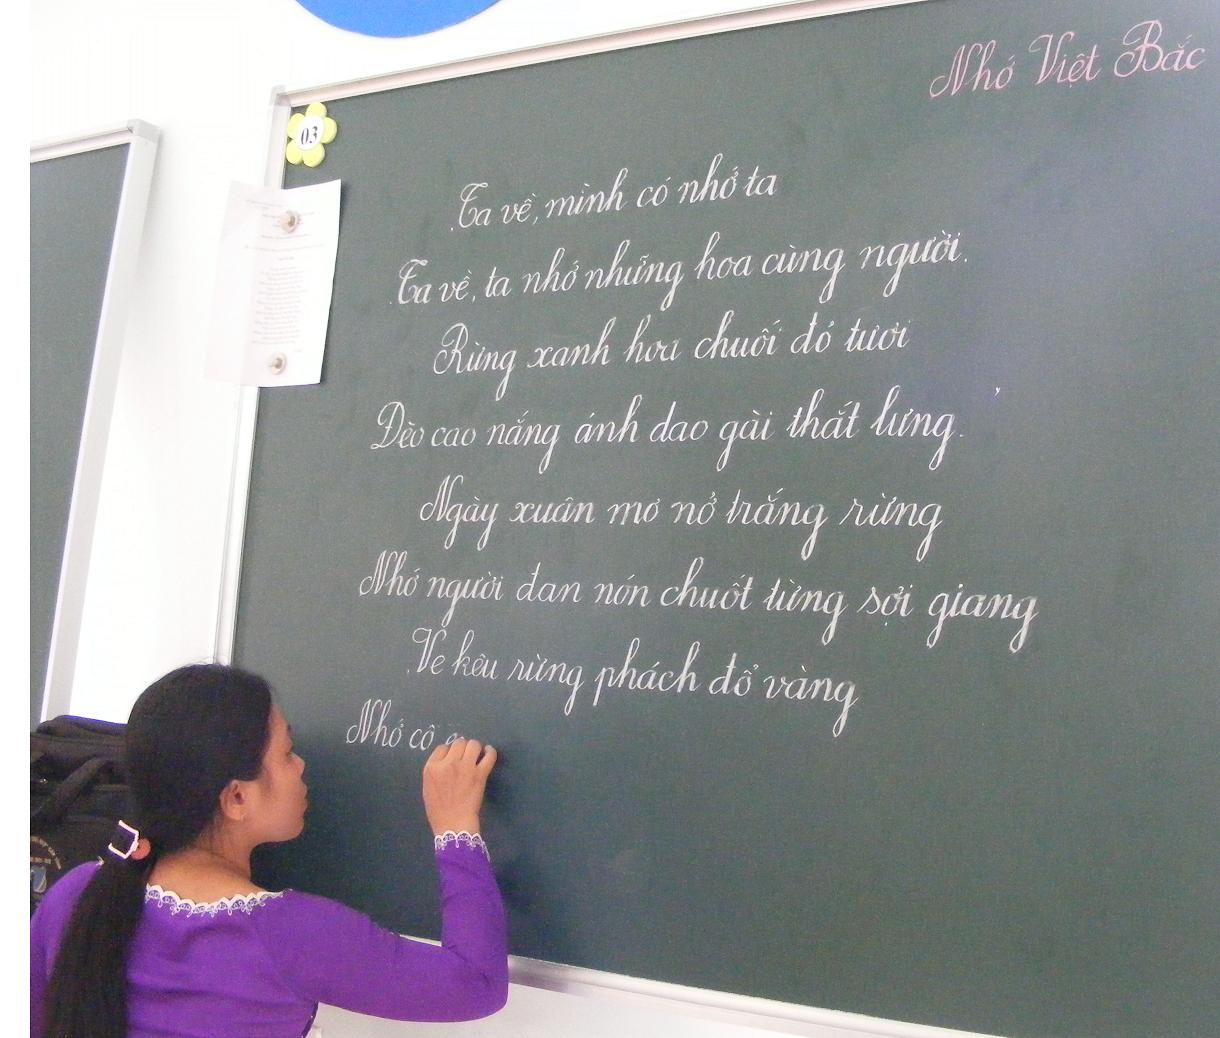 Nhớ Việt Bắc
03
Ta về, mình có nhớ ta
Ta về, ta nhớ những hoa cùng người.
Rừng xanh hoa chuối đỏ tươi
Đèo cao nắng ánh dao gài thắt lưng.
Ngày xuân mơ nở trắng rừng
Nhớ người đan nón chuốt từng sợi giang
Ve kêu rừng phách đổ vàng
Nhớ cô